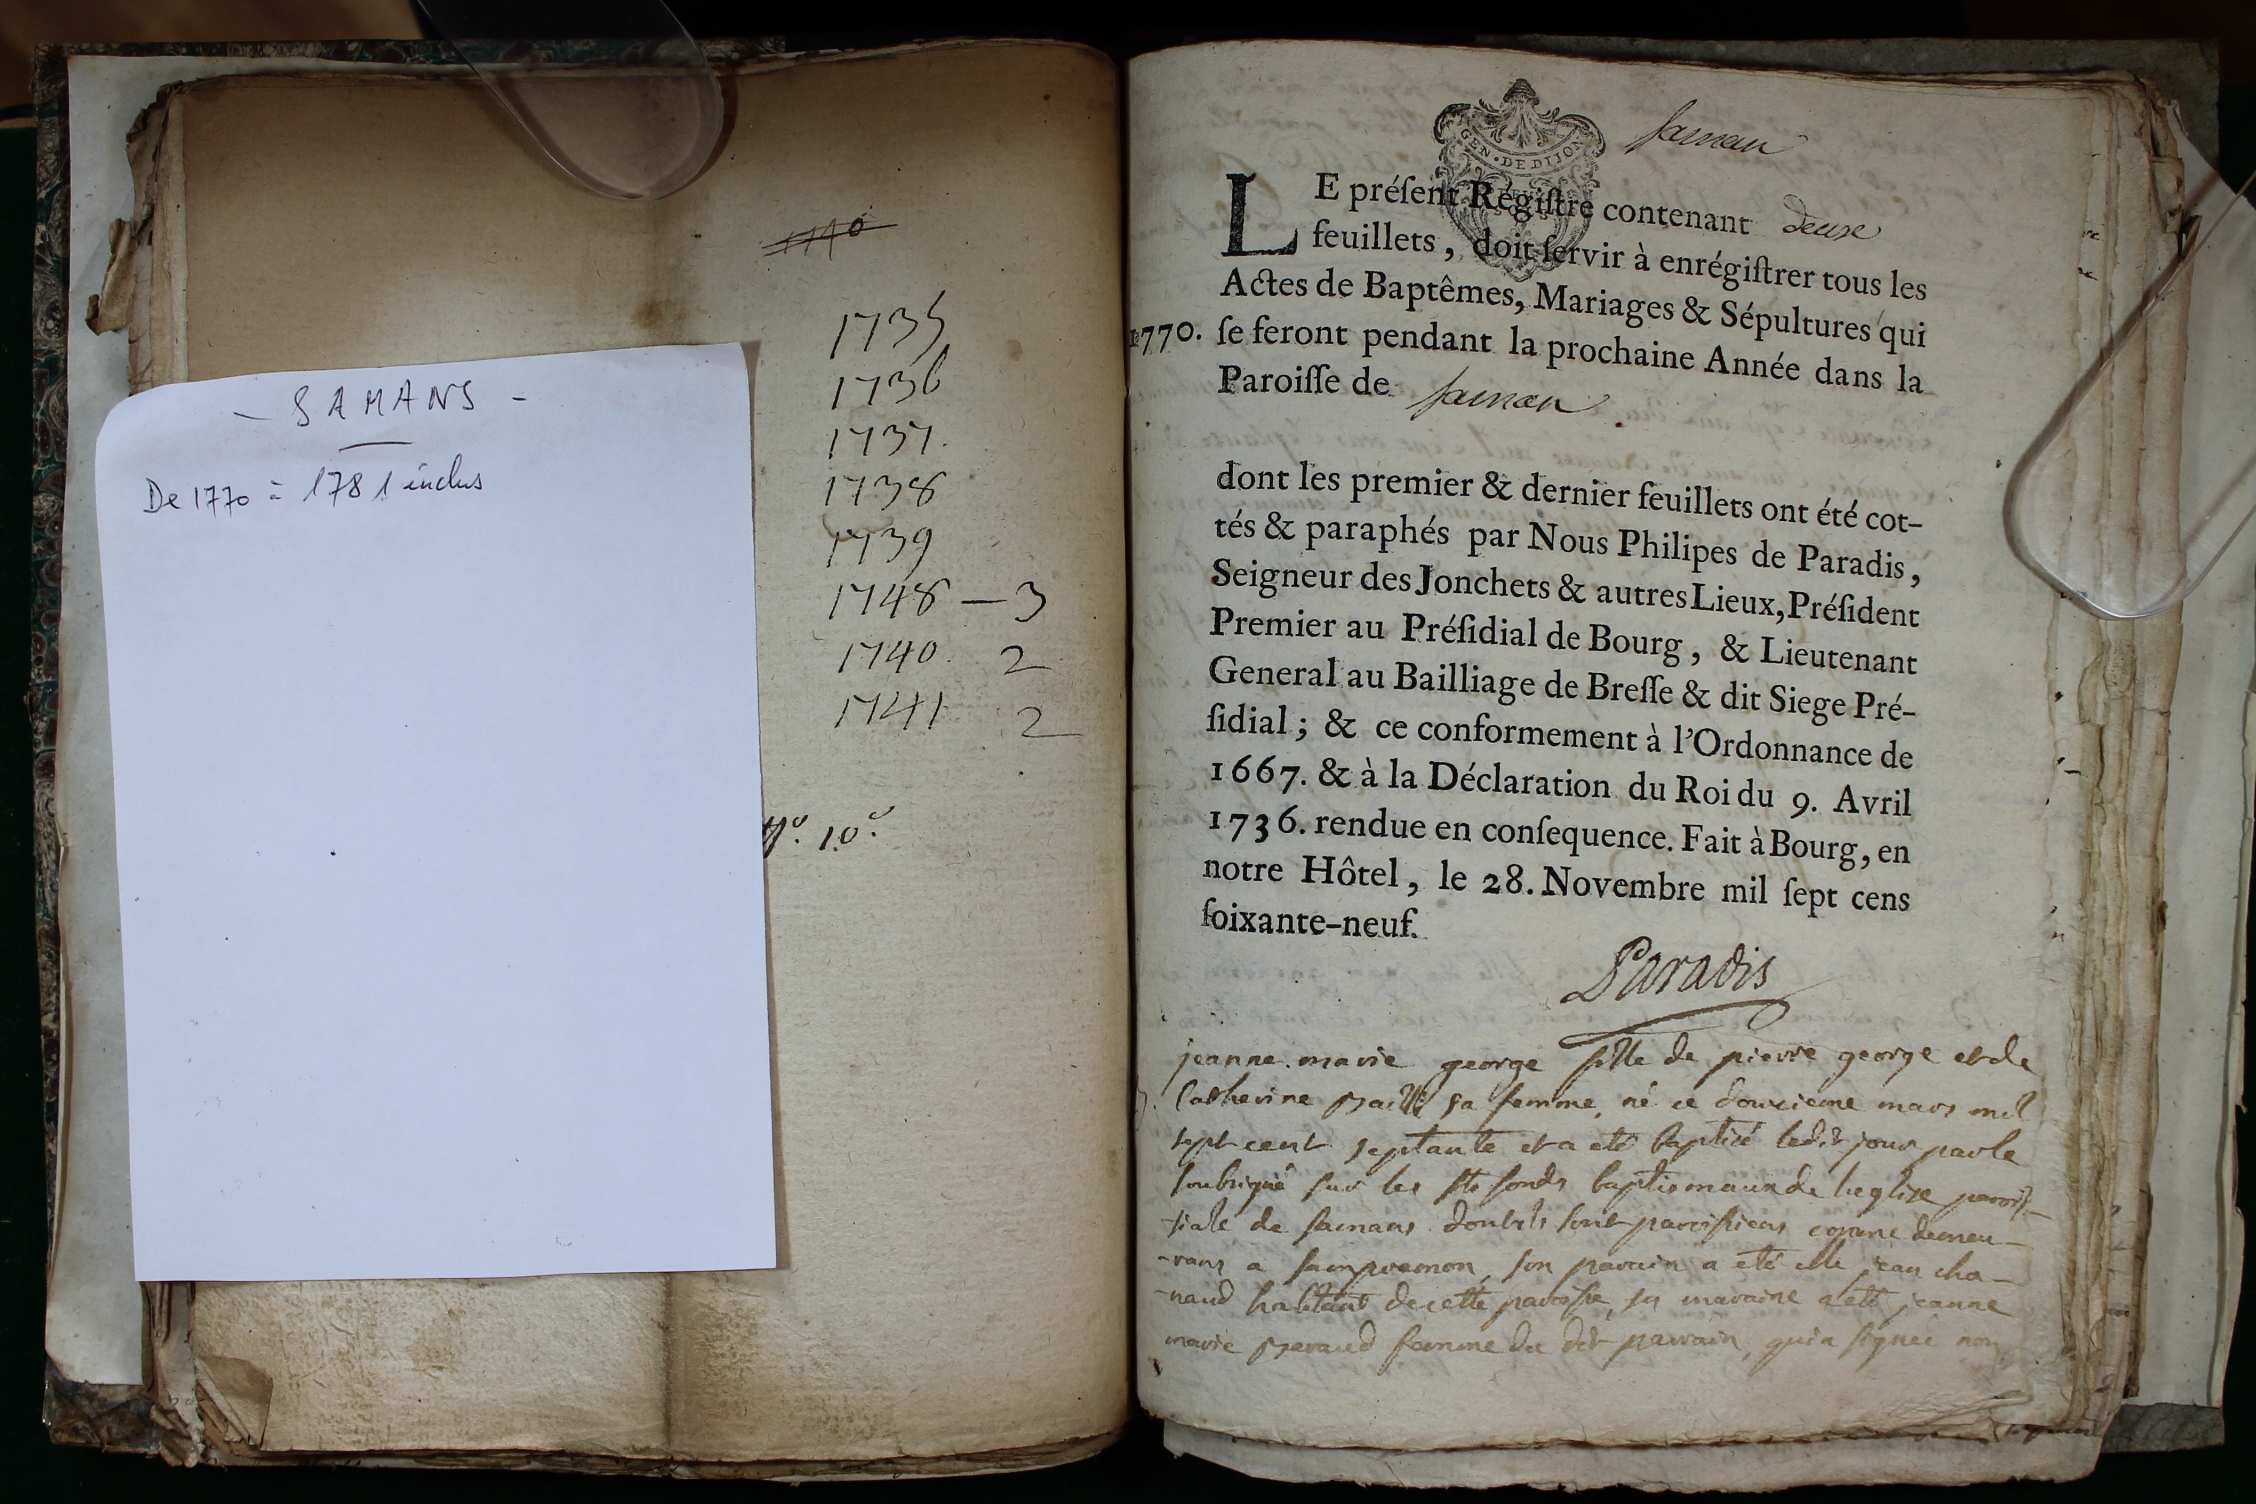 1770
1735
1736
1737.
1738
1739
1748 — 3
1740. 2
1741 2
No. 10.
- SAMANS -
De 1770 = 1781 inclus
GEN·DE DIJON
saman
LE préſent Régiſtre contenant deux
feuillets, doit ſervir à enrégiſtrer tous les
Actes de Baptêmes, Mariages & Sépultures qui
1770. ſe feront pendant la prochaine Année dans la
Paroiſſe de saman
dont les premier & dernier feuillets ont été cot-
tés & paraphés par Nous Philipes de Paradis,
Seigneur des Jonchets & autres Lieux, Préſident
Premier au Préſidial de Bourg, & Lieutenant
General au Bailliage de Breſſe & dit Siege Pré-
ſidial; & ce conformement à l'Ordonnance de
1667. & à la Déclaration du Roi du 9. Avril
1736. rendue en conſequence. Fait à Bourg, en
notre Hôtel, le 28. Novembre mil ſept cens
ſoixante-neuf.
Paradis
jeanne marie george fille de pierre george et de
Catherine sa femme, né ce douzieme mars mil
sept cent septante et a eté baptisé ledit jour par le
soubsigné sur les fonds baptismaux de l'eglise parois-
-siale de samans dont ils sont paroissiens comme demeu-
-rans a son parrain a eté jean cha-
-naud habitant de cette paroisse, sa maraine a eté jeanne
marie femme du dit parrain, qui a signée non